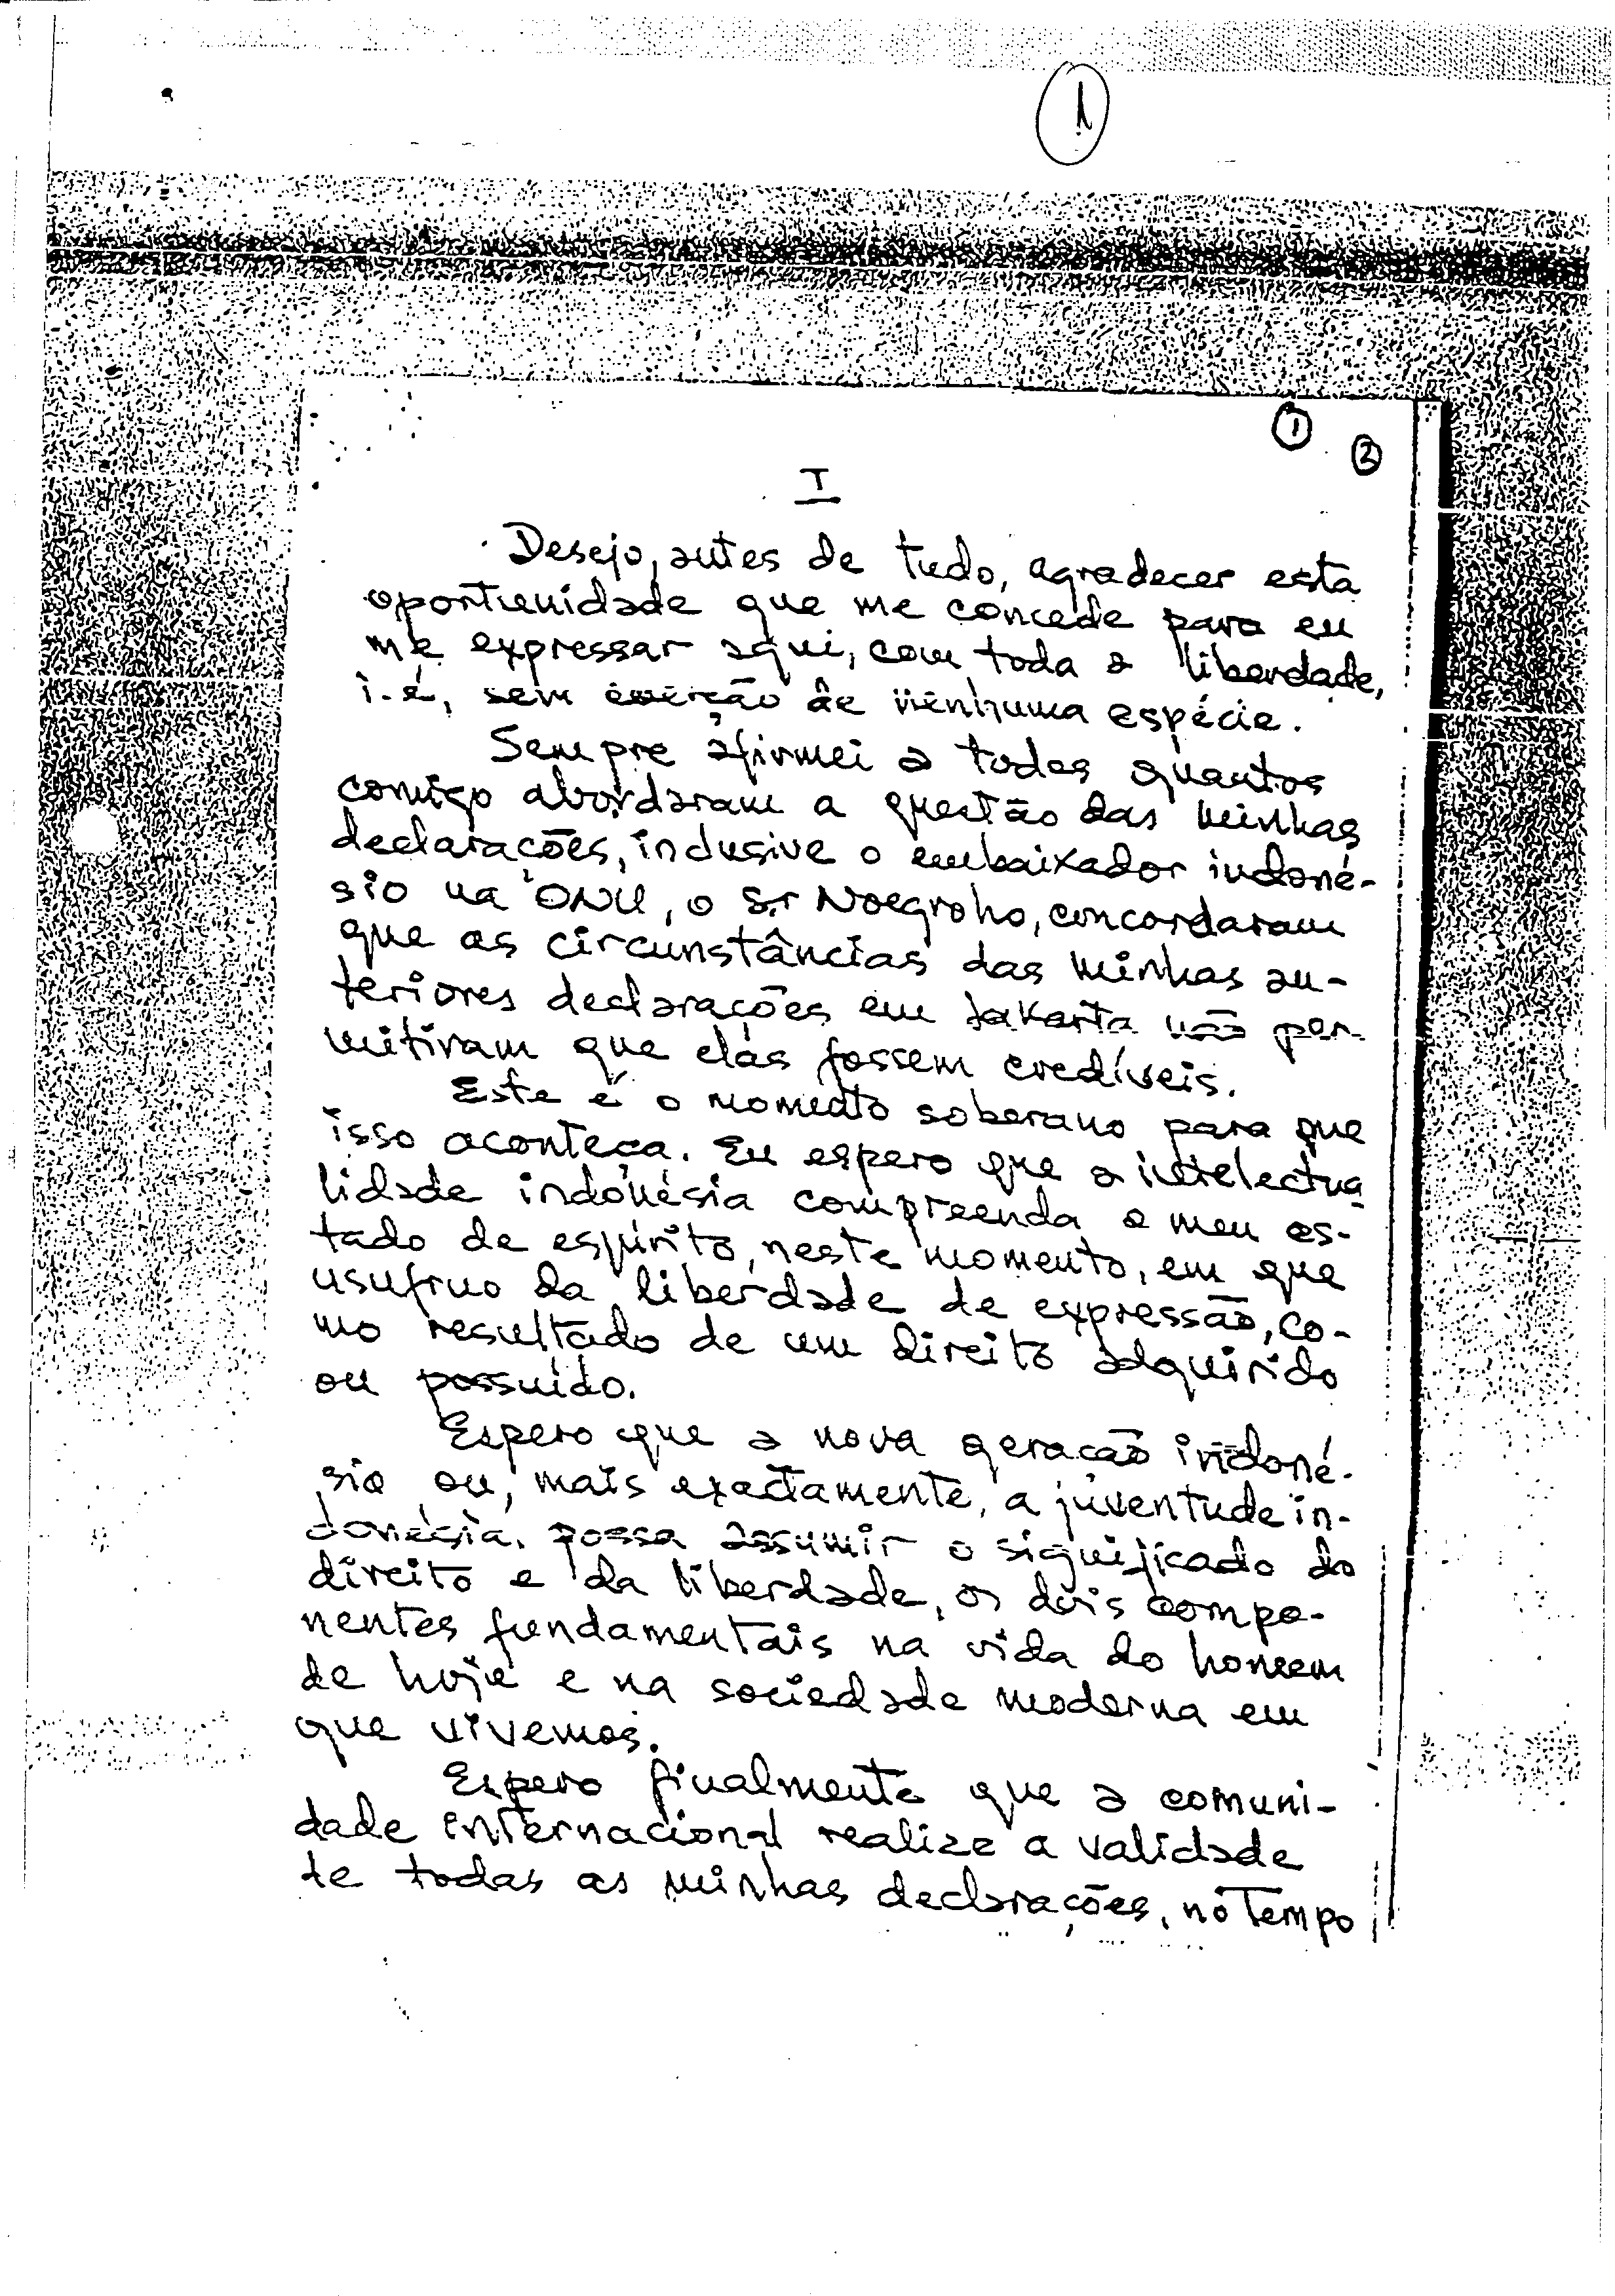 1
1
2
I
Desejo, antes de tudo, agradecer esta
oportunidade que me concede para eu
me expressar aqui, com toda a liberdade,
i.é, sem coerção de nenhuma espécie.
Sempre afirmei a todos quantos
comigo abordaram a questão das minhas
declarações, inclusive o embaixador indoné-
sio na ONU, o Sr Noegroho, concordaram
que as circunstâncias das minhas an-
teriores declarações em Jakarta não per-
mitiram que elas fossem credíveis.
Este é o momento soberano para que
isso aconteça. Eu espero que a intelectua
lidade indonésia compreenda o meu es-
tado de espírito, neste momento, em que
usufruo da liberdade de expressão, co-
mo resultado de um direito adquirido
ou possuído.
Espero que a nova geração indoné-
sia ou, mais exactamente, a juventude in-
donésia, possa assumir o significado do
direito e da liberdade, os dois compo-
nentes fundamentais na vida do homem
de hoje e na sociedade moderna em
que vivemos.
Espero finalmente que a comuni-
dade internacional realize a validade
de todas as minhas declarações, no tempo